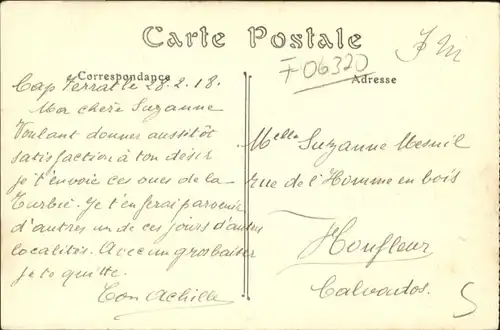 Carte Postale
F 06320
Correspondance
Adresse
Cap Ferrat le 28.2.18.
Ma chère Suzanne
Voulant donner aussitôt
satisfaction à ton désir
je t'envoie ces vues de la
Turbie. Je t'en ferai parvenir
d'autres un de ces jours d'autres
localités. Avec un gros baiser
je te quitte.
Ton Achille
Melle Suzanne Mesnil
rue de l'Homme en bois
Honfleur
Calvados.